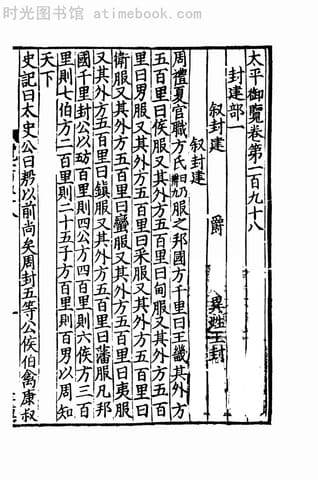 时光图书馆 - www.atimebook.com
太平御覽卷第一百九十八
封建部一
叙封建 爵 異姓王封
叙封建
周禮夏官職方氏曰乃辨九服之邦國方千里曰王畿其外方
五百里曰侯服又其外方五百里曰甸服又其外方五百
里曰男服又其外方五百里曰采服又其外方五百里曰
衛服又其外方五百里曰蠻服又其外方五百里曰夷服
又其外方五百里曰鎮服又其外方五百里曰藩服凡邦
國千里封公以方五百里則四公方四百里則六侯方三百
里則七伯方二百里則二十五子方百里則百男以周知
天下
史記曰太史公曰殷以前尚矣周封五等公侯伯禽康叔